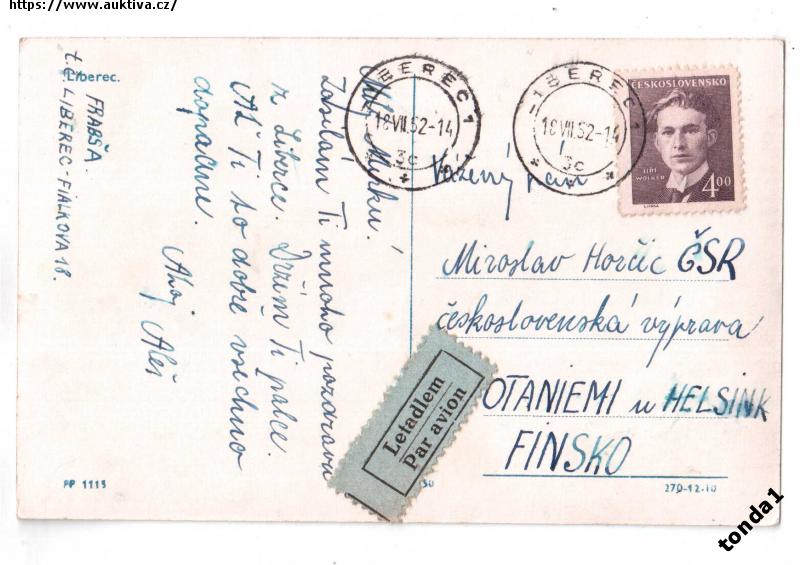 https://www.auktiva.cz/
Liberec.
FRABŠA.
t.č. LIBEREC-FIALKOVA 18.
Milý Mirku!
Zasílám Ti mnoho pozdravů
z Liberce. Držím Ti palce.
Ať Ti to dobře všechno
dopadne.
Ahoj Aleš
LIBEREC 1
18.VII.52-14
3c
LIBEREC 1
18.VII.52-14
3c
ČESKOSLOVENSKO
JIŘÍ
WOLKER
4.00
Vážený pan
Miroslav Horčic ČSR
československá výprava
OTANIEMI u HELSINK
FINSKO
Letadlem
Par avion
PP 1115
50
270-12-10
tonda1